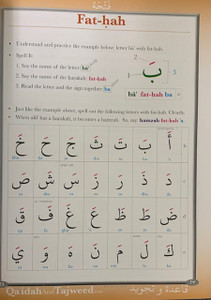 Fat-ḥah
Understand and practice the example below, letter bā' with fat-ḥah.
Spell It:
1. Say the name of the letter: bā'
2. Say the name of the ḥarakah: fat-ḥah
3. Read the letter and the sign together: ba
بَ
1
2
3
bā' fat-ḥah ba
Just like the example above, spell out the following letters with fat-ḥah. Clearly.
When alif has a ḥarakah, it becomes a hamzah. So, say: hamzah fat-ḥah 'a
أَ بَ تَ ثَ جَ حَ خَ
دَ ذَ رَ زَ سَ شَ صَ
ضَ طَ ظَ عَ غَ فَ قَ
كَ لَ مَ نَ هَ وَ يَ
Qaidah And Tajweed.com
قاعدة و تجويد